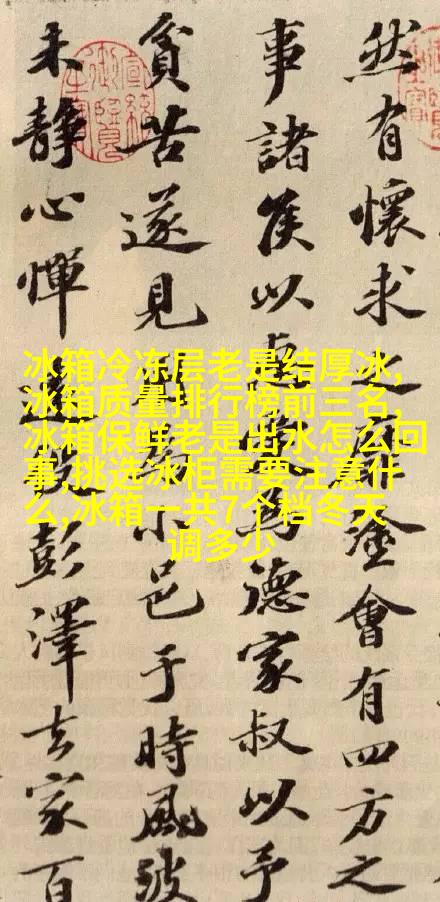 然有懷求之靡塗會有四方之
事諸侯以為德家叔以予
貧苦遂見用為小邑于時風波
未靜心憚遠役彭澤去家百
冰箱冷冻层老是结厚冰,
冰箱质量排行榜前三名,
冰箱保鲜老是出水怎么回
事,挑选冰柜需要注意什
么,冰箱一共7个档冬天
调多少